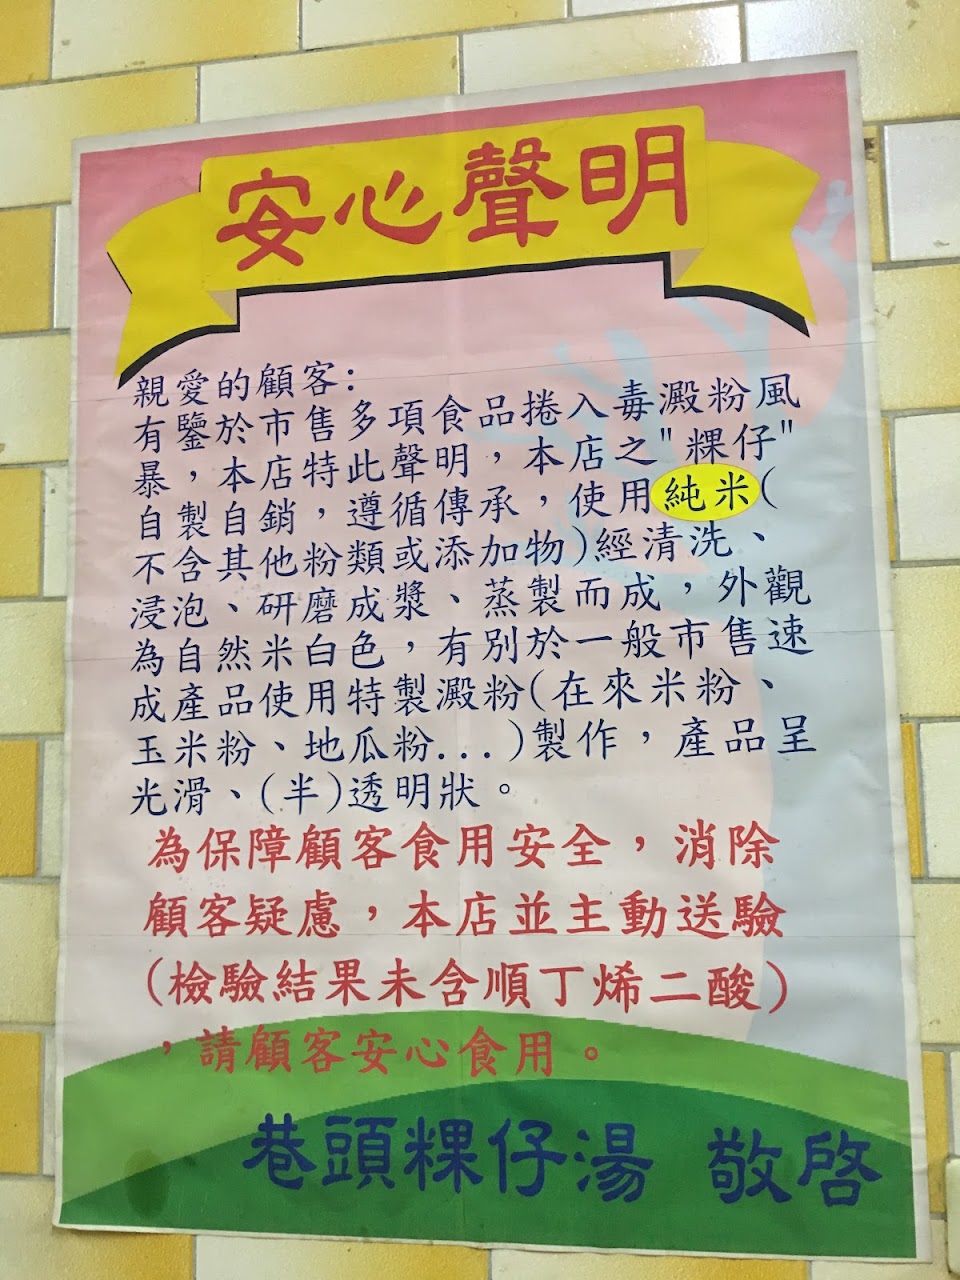 安心聲明
親愛的顧客:
有鑒於市售多項食品捲入毒澱粉風
暴，本店特此聲明，本店之"粿仔"
自製自銷，遵循傳承，使用純米(
不含其他粉類或添加物)經清洗、
浸泡、研磨成漿、蒸製而成，外觀
為自然米白色，有別於一般市售速
成產品使用特製澱粉(在來米粉、
玉米粉、地瓜粉...)製作，產品呈
光滑、(半)透明狀。
為保障顧客食用安全，消除
顧客疑慮，本店並主動送驗
(檢驗結果未含順丁烯二酸)
，請顧客安心食用。
巷頭粿仔湯 敬啓